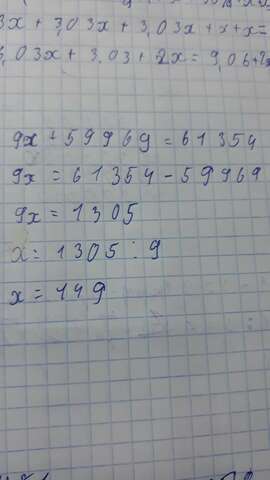 3x + 3,03x + 3,03x + x + x =
3,03x + 3,03 + 2x = 9,06 + 2x
9x + 59969 = 61354
9x = 61354 - 59969
9x = 1305
x = 1305 : 9
x = 149